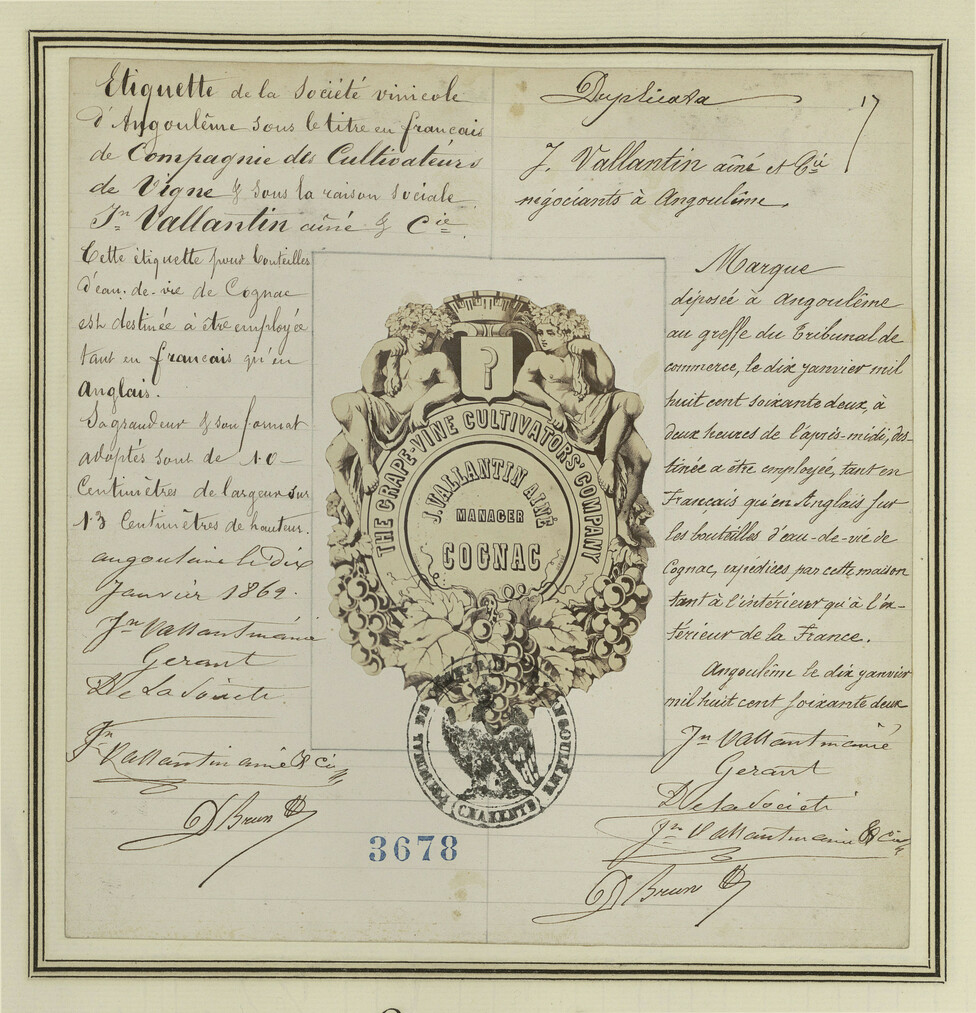 Etiquette de la Société vinicole
d'Angoulême sous le titre en français
de Compagnie des Cultivateurs
de Vigne & sous la raison sociale
Jn Vallantin aîné & Cie
Cette étiquette pour bouteilles
d'eau-de-vie de Cognac
est destinée à être employée
tant en français qu'en
Anglais.
Sa grandeur & son format
adoptés sont de 10
Centimètres de largeur sur
13 Centimètres de hauteur.
angoulême le Dix
Janvier 1862.
Jn Vallantin ainé
Gerant
De La Société
Jn Vallantin ainé & Cie
D Brun
Duplicata
17
J. Vallantin aîné et Cie
négociants à Angoulême.
Marque
déposée à Angoulême
au greffe du Tribunal de
commerce, le dix janvier mil
huit cent soixante deux, à
deux heures de l'après-midi, des-
tinée a être employée, tant en
Français qu'en Anglais sur
les bouteilles d'eau-de-vie de
Cognac, expédiées par cette maison
tant à l'intérieur qu'à l'ex-
térieur de la France.
Angoulême le dix janvier
mil huit cent soixante deux
Jn Vallantin ainé
Gerant
De la Société
Jn Vallantin ainé & Cie
D Brun
THE GRAPE-VINE CULTIVATORS' COMPANY
J. VALLANTIN AINÉ
MANAGER
COGNAC
TRIBUNAL DE
ANGOULÊME
CHARENTE
3678